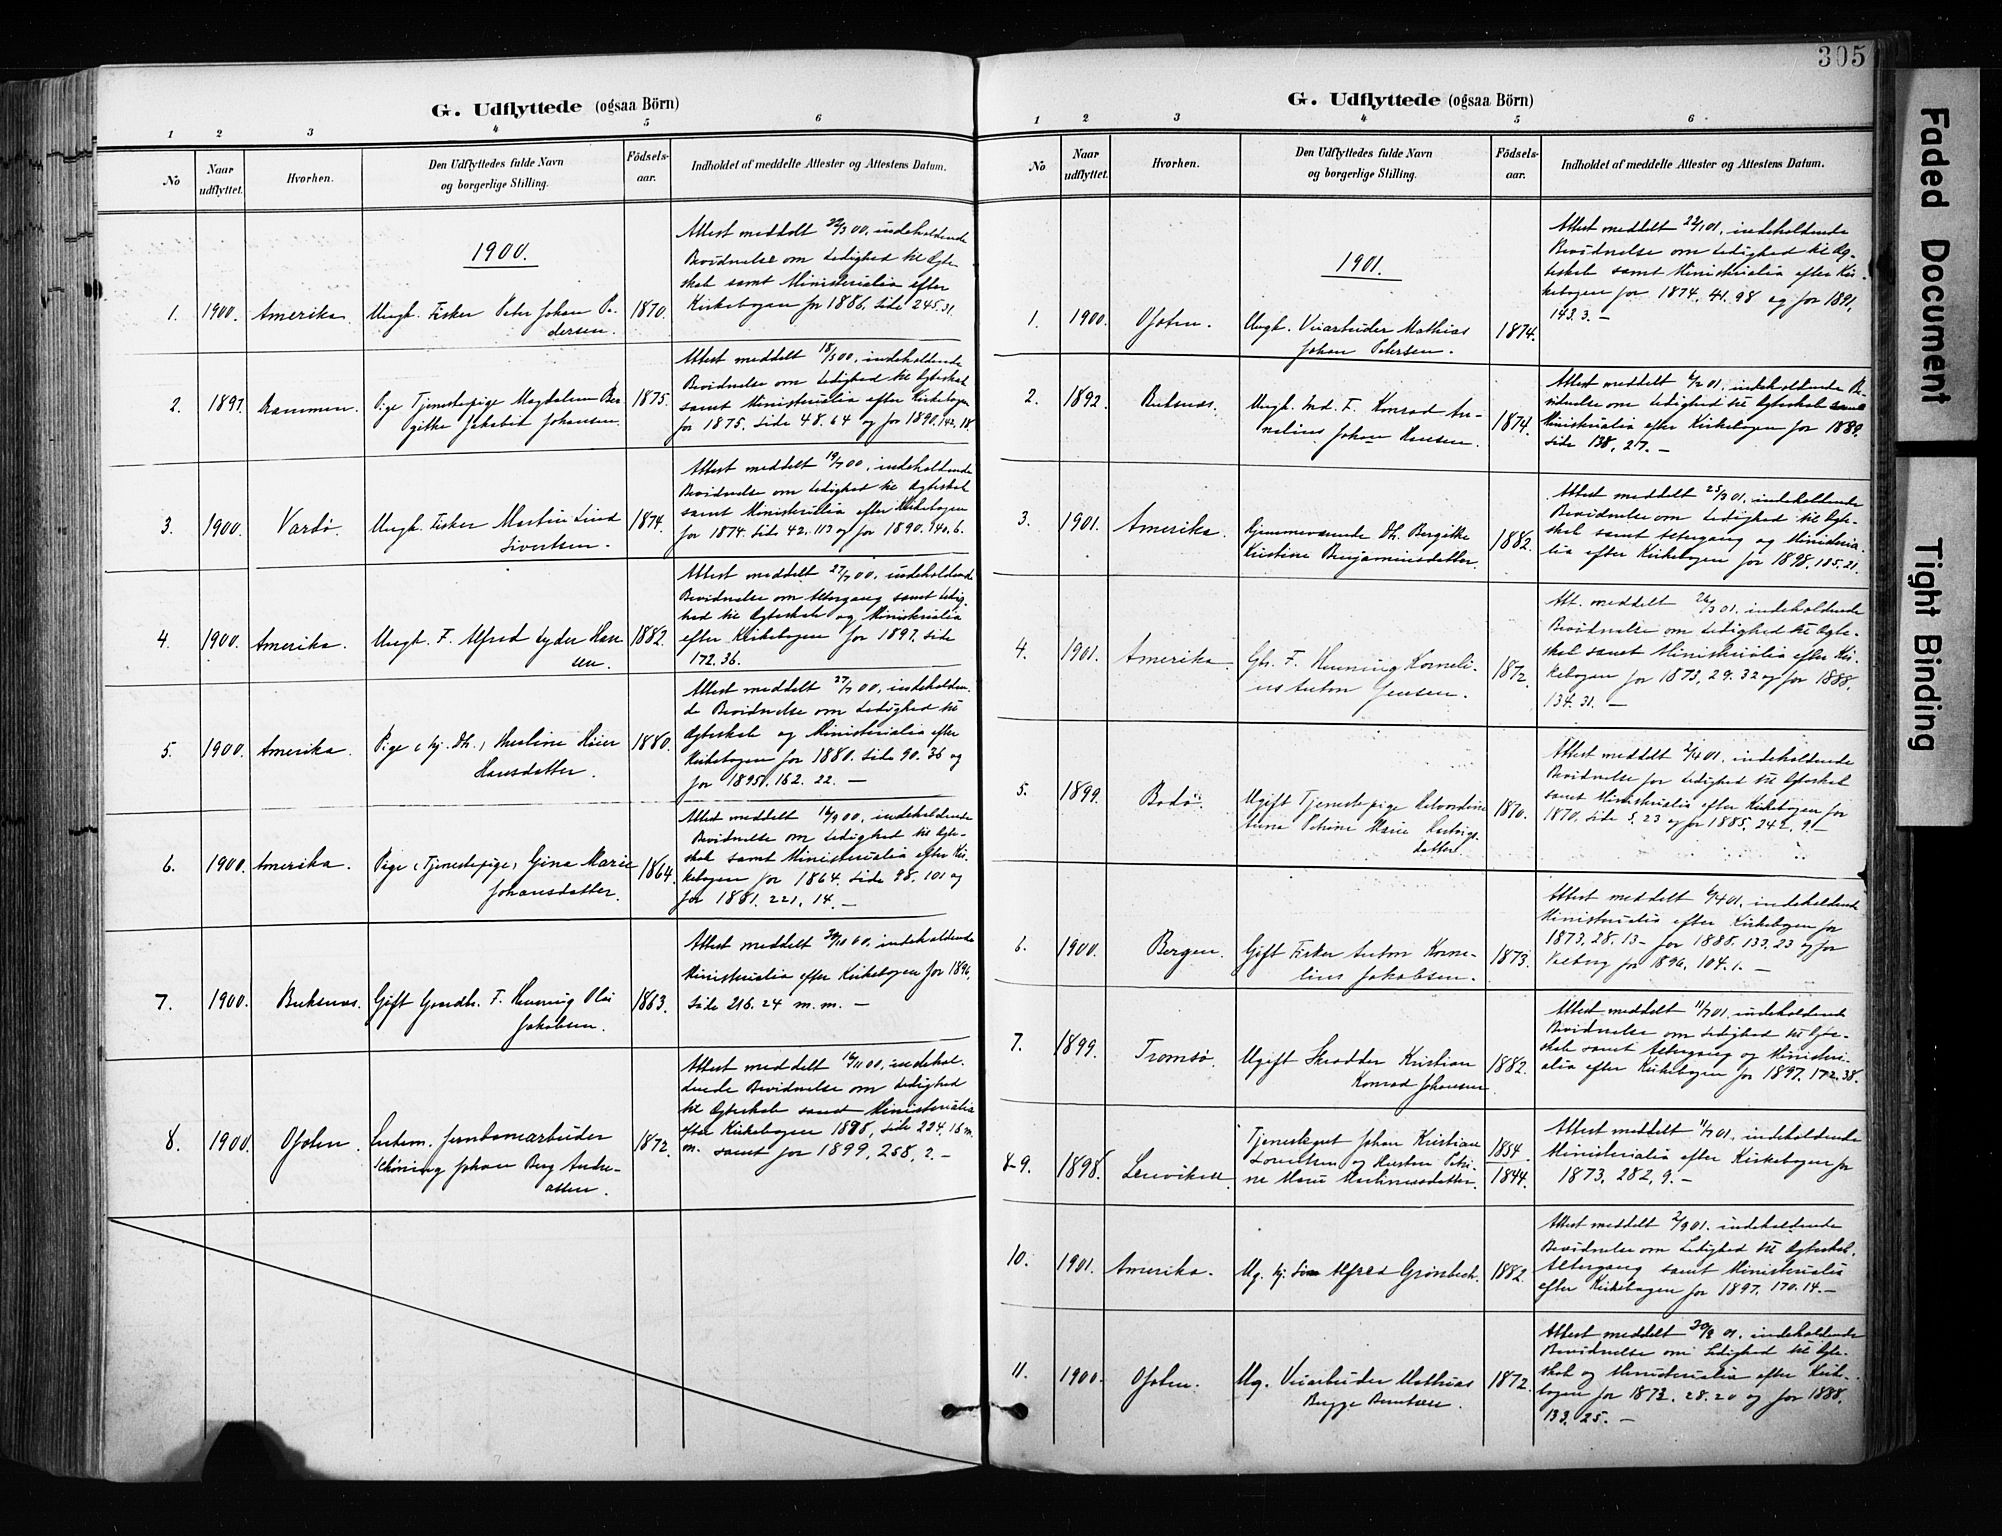 305
G. Udflyttede (ogsaa Börn)
1 2 3 4 5 6
No
Naar udflyttet.
Hvorhen.
Den Udflyttedes fulde Navn og borgerlige Stilling.
Fødsels-aar.
Indholdet af meddelte Attester og Attestens Datum.
1900.
1. 1900. Amerika. Ungk. Fisker Peter Johan Pe-
dersen. 1870.
Attest meddelt 22/3 00, indeholdende
Bevidnelse om Ledighed til Ægte-
skab samt Ministerialia efter
Kirkebogen for 1886. side 245.31.
2. 1897. Drammen. Pige Tjenestepige Magdalena Ber
gitte Jakobine Johansen. 1875.
Attest meddelt 18/5 00, indeholdende
Bevidnelse om Ledighed til Ægteskab
samt Ministerialia efter Kirkebogen
for 1875. side 48.64 og for 1890.142.18.
3. 1900. Vardø. Ungk. Fisker Martin Lind
Sivertsen. 1874.
Attest meddelt 19/7 00, indeholdende
Bevidnelse om Ledighed til Ægteskab
samt Ministerialia efter Kirkebogen
for 1874. side 42.113 og for 1890.140.6.
4. 1900. Amerika. Ungk. F. Alfred Lyder Han
sen. 1882.
Attest meddelt 27/7 00, indeholdende
Bevidnelse om Altergang samt Ledig
hed til Ægteskab og Ministerialia
efter Kirkebogen for 1897. side
172.36.
5. 1900. Amerika. Pige (hj. Dtr.) Høier
Hansdatter. 1880.
Attest meddelt 27/7 00, indeholden
de Bevidnelse om Ledighed til
Ægteskab og Ministerialia efter
Kirkebogen for 1880. side 90.36 og
for 1895. 162. 22. –
6. 1900. Amerika. Pige (Tjenestepige) Gina Marie
Johansdatter. 1864.
Attest meddelt 16/9 00, indeholdende
Bevidnelse om Ledighed til Ægte-
skab samt Ministerialia efter Kir-
kebogen for 1864. side 98.101 og
for 1881. 221, 14. –
7. 1900. Buksnæs. Gift Gmdbr. F. Henning Olai
Jakobsen. 1863.
Attest meddelt 30/10 00, indeholdende
Ministerialia efter Kirkebogen for 1896.
side 216.24 m. m. –
8. 1900. Ofoten. Jernbanearbeider
Schöning Johan Berg Andre-
assen. 1872.
Attest meddelt 16/11 00, indehol-
dende Bevidnelse om Ledighed
til Ægteskab samt Ministerialia
efter Kirkebogen 1888, side 224.16 m.
m. samt for 1899, 258, 2. –
G. Udflyttede (ogsaa Börn)
1 2 3 4 5 6
No
Naar udflyttet.
Hvorhen.
Den Udflyttedes fulde Navn og borgerlige Stilling.
Fødsels-aar.
Indholdet af meddelte Attester og Attestens Datum.
1901.
1. 1900. Ofoten. Ungk. Veiarbeider Mathias
Johan Petersen. 1874.
Attest meddelt 22/1 01, indeholdende
Bevidnelse om Ledighed til Æg-
teskab samt Ministerialia efter Kir-
kebogen for 1874. 41.98 og for 1891,
143.3. –
2. 1892. Buksnæs. Ungk. Ind. F. Konrad An-
nelius Johan Hansen. 1874.
Attest meddelt 6/2 01, indeholdende Be-
vidnelse om Ledighed til Ægteskab samt
Ministerialia efter Kirkebogen for 1889.
side 138, 27. –
3. 1901. Amerika. Hjemmeværende Dtr. Bergitte
Kristine Benjaminsdatter. 1882.
Attest meddelt 25/3 01, indeholdende
Bevidnelse om Ledighed til Ægte-
skab samt Altergang og Ministeria-
lia efter Kirkebogen for 1898. 185.21.
4. 1901. Amerika. Gbr. F. Henning Korneli-
us Anton Jensen. 1872.
Att. meddelt 26/3 01, indeholdende
Bevidnelse om Ledighed til Ægte-
skab samt Ministerialia efter Kir-
kebogen for 1873, 29.32 og for 1888,
134.31. –
5. 1899. Bodø. Ugift Tjenestepige
Anna Petrine Marie Hartvigs
datter. 1870.
Attest meddelt 2/4 01, indeholdende
Bevidnelse for Ledighed til Ægteskab
samt Ministerialia efter Kirkebogen for
1870. side 5.23 og for 1885. 242. 9. –
6. 1900. Bergen. Gift Fisker Anton Korne-
lius Jakobsen. 1873.
Attest meddelt 6/4 01, indeholdende
Ministerialia efter Kirkebogen for
1873. 28.13 – for 1888. 133.23 og for
for 1896. 104.1. –
7. 1899. Tromsø. Ugift Skrædder Kristian
Konrad Johansen 1882.
Attest meddelt 11/7 01, indeholdende
Bevidnelse om Ledighed til Ægte-
skab samt Altergang og Ministeri-
alia efter Kirkebogen for 1897. 172.38.
8-9. 1898. Lenviken. Tjenestegut Johan Kristian
Lorentsen og Hustru Petri-
ne Marie Martinusdatter. 1854
1844.
Attest meddelt 11/7 01, indeholdende
Ministerialia efter Kirkebogen for
1873, 282, 9. –
10. 1901. Amerika. Ug. hj. Søn Alfred Grønbech. 1882.
Attest meddelt 2/9 01, indeholdende
Bevidnelse om Ledighed til Ægteskab,
Altergang samt Ministerialia
efter Kirkebogen for 1897. 170.14. –
11. 1900. Ofoten. Ug. Veiarbeider Mathias
Bugge Berntsen. 1872.
Attest meddelt 30/9 01, indeholdende
Bevidnelse om Ledighed til Ægte-
skab og Ministerialia efter Kirke-
bogen for 1873. 28.20 og for 1888,
133.25. –
Faded Document
Tight Binding